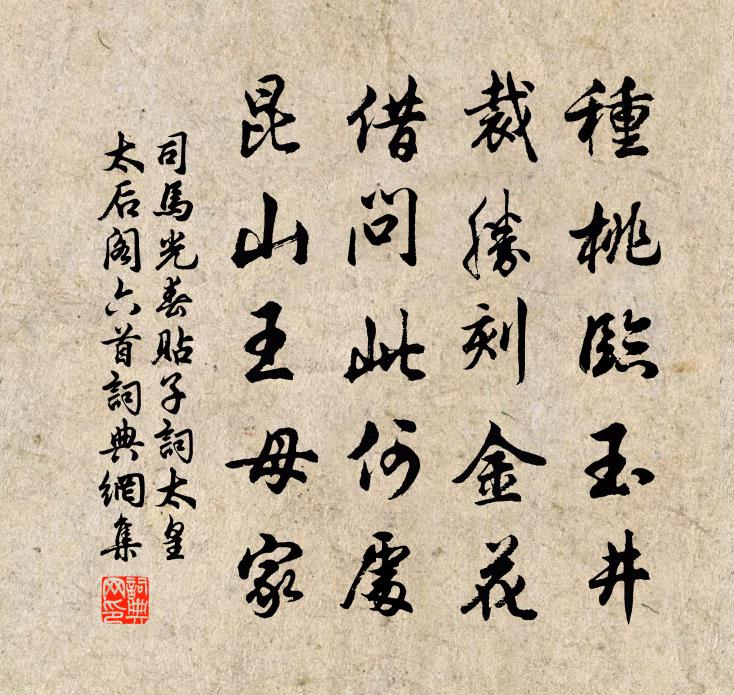 種桃臨玉井
裁勝刻金花
借問此何處
昆山王母家
司馬光春貼子詞太皇
太后閣六首詞典網集
詞典网印